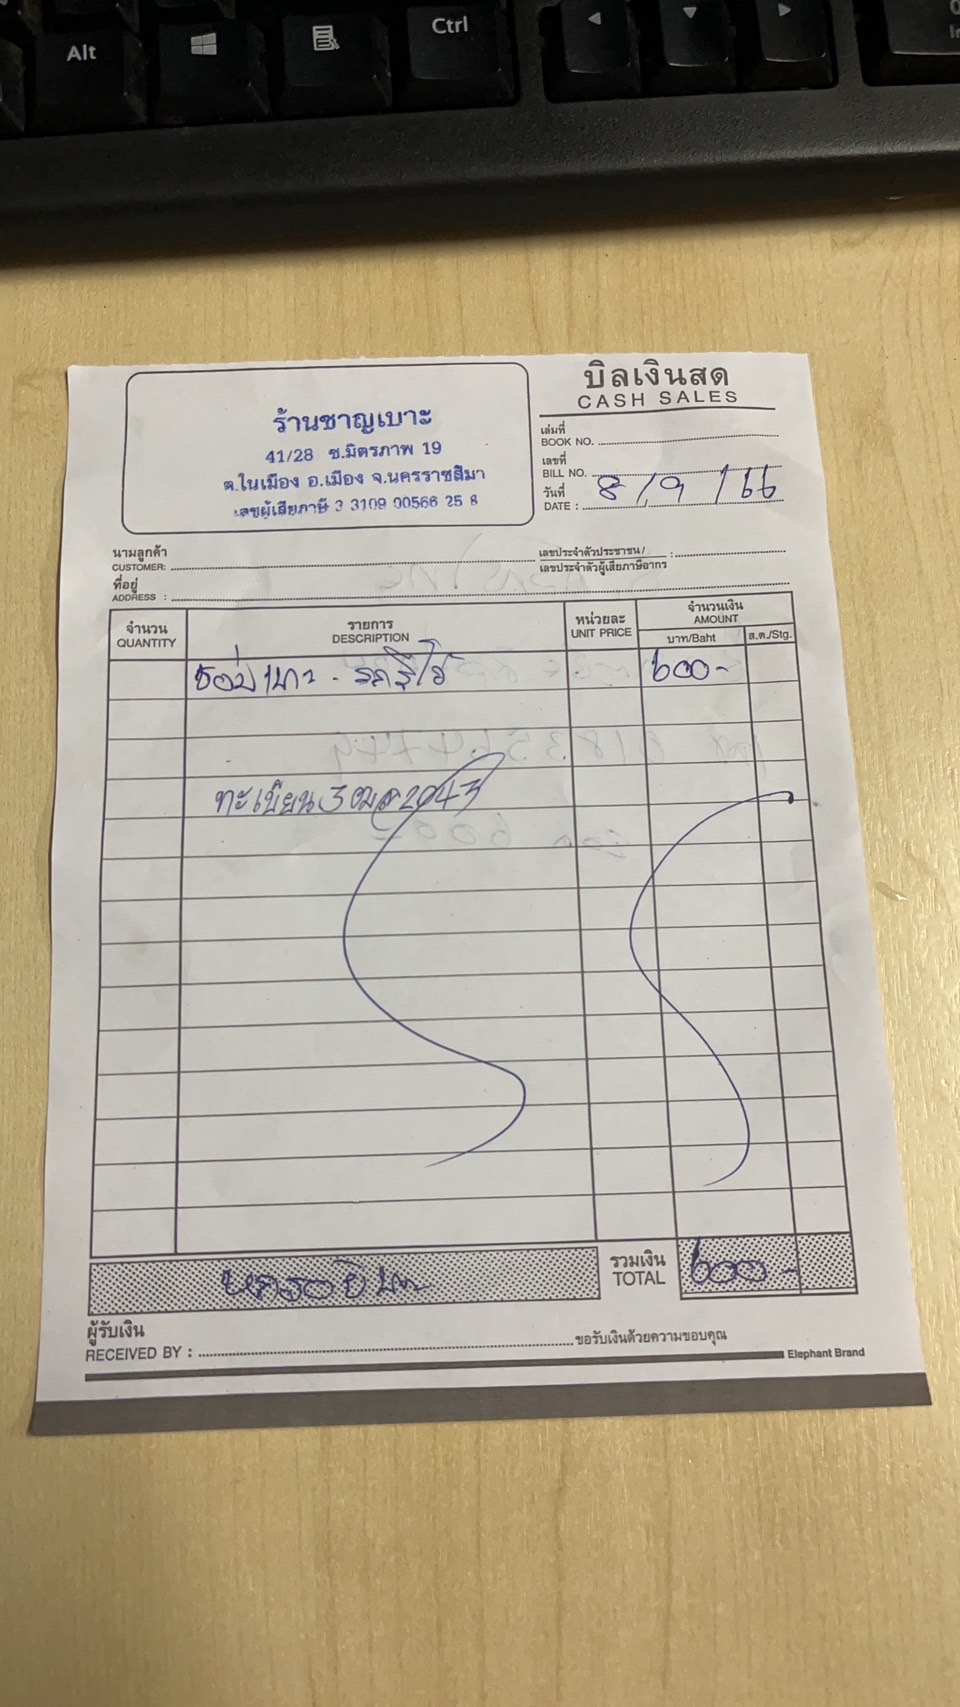 Alt
Ctrl
บิลเงินสด
CASH SALES
ร้านชาญเบาะ
41/28 ซ.มิตรภาพ 19
ต.ในเมือง อ.เมือง จ.นครราชสีมา
เลขผู้เสียภาษี 3 3109 00566 25 8
เล่มที่
BOOK NO.
เลขที่
BILL NO.
วันที่
DATE : 8/9/66
นามลูกค้า
CUSTOMER:
เลขประจำตัวประชาชน/
เลขประจำตัวผู้เสียภาษีอากร :
ที่อยู่
ADDRESS :
จำนวน รายการ หน่วยละ จำนวนเงิน
QUANTITY DESCRIPTION UNIT PRICE AMOUNT
บาท/Baht ส.ต./Stg.
ซ่อมเบาะ 600-
ทะเบียน 2043
รวมเงิน
TOTAL 600-
หกร้อยบาท
ผู้รับเงิน
RECEIVED BY : ขอรับเงินด้วยความขอบคุณ
Elephant Brand